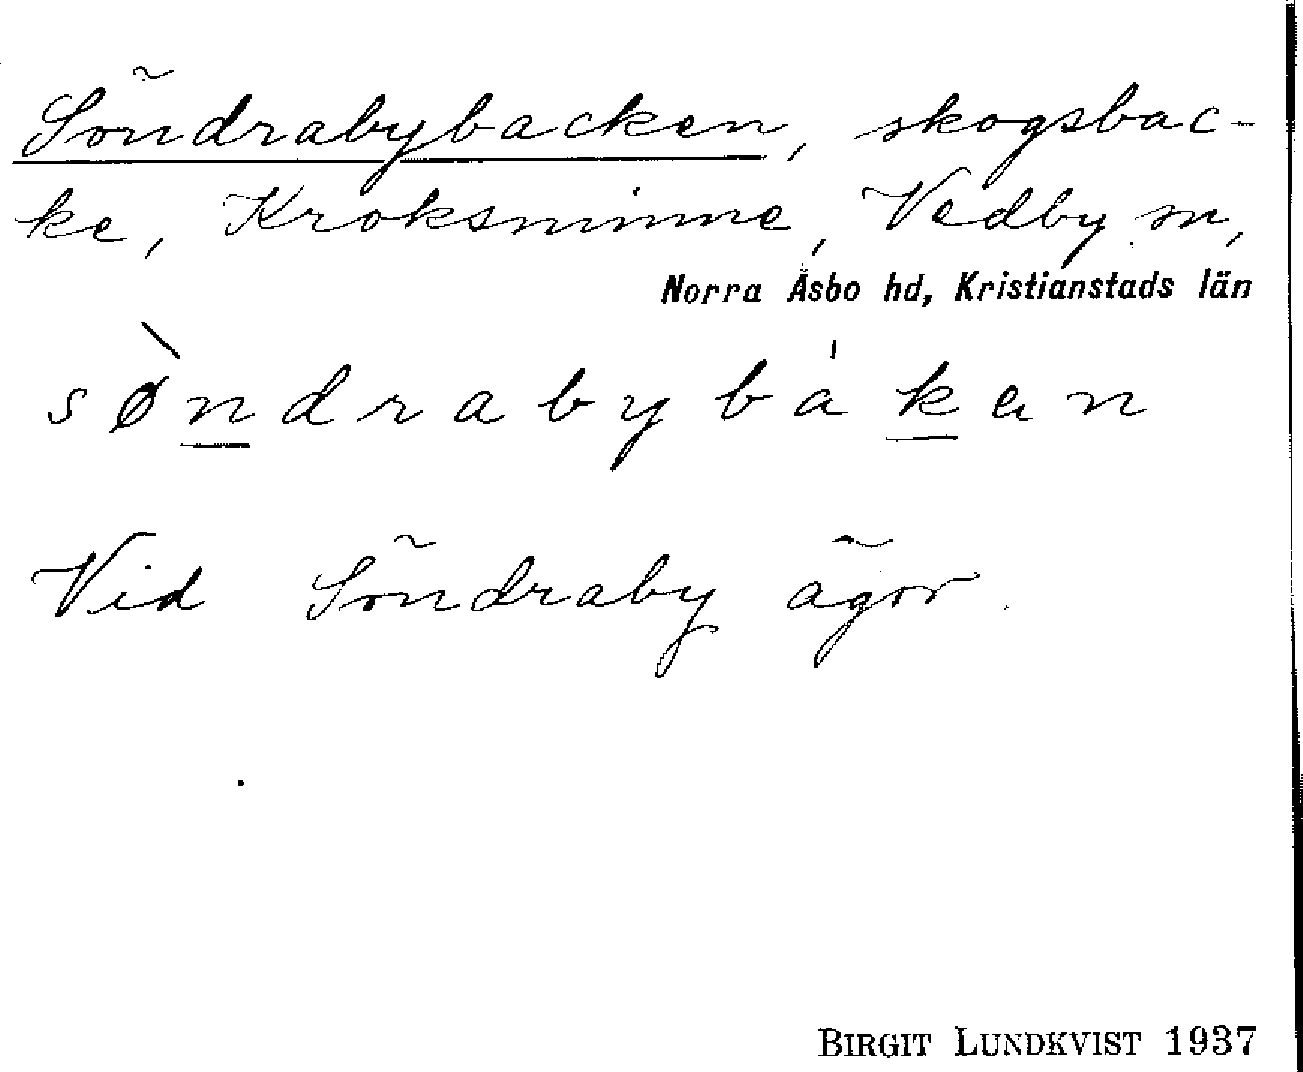 Söndrabybacken, skogsbac-
ke, Kroksminne, Vedby sn,
Norra Åsbo hd, Kristianstads län
sø̀n̲drabybák̲an
Vid Söndraby ägor.
BIRGIT LUNDKVIST 1937